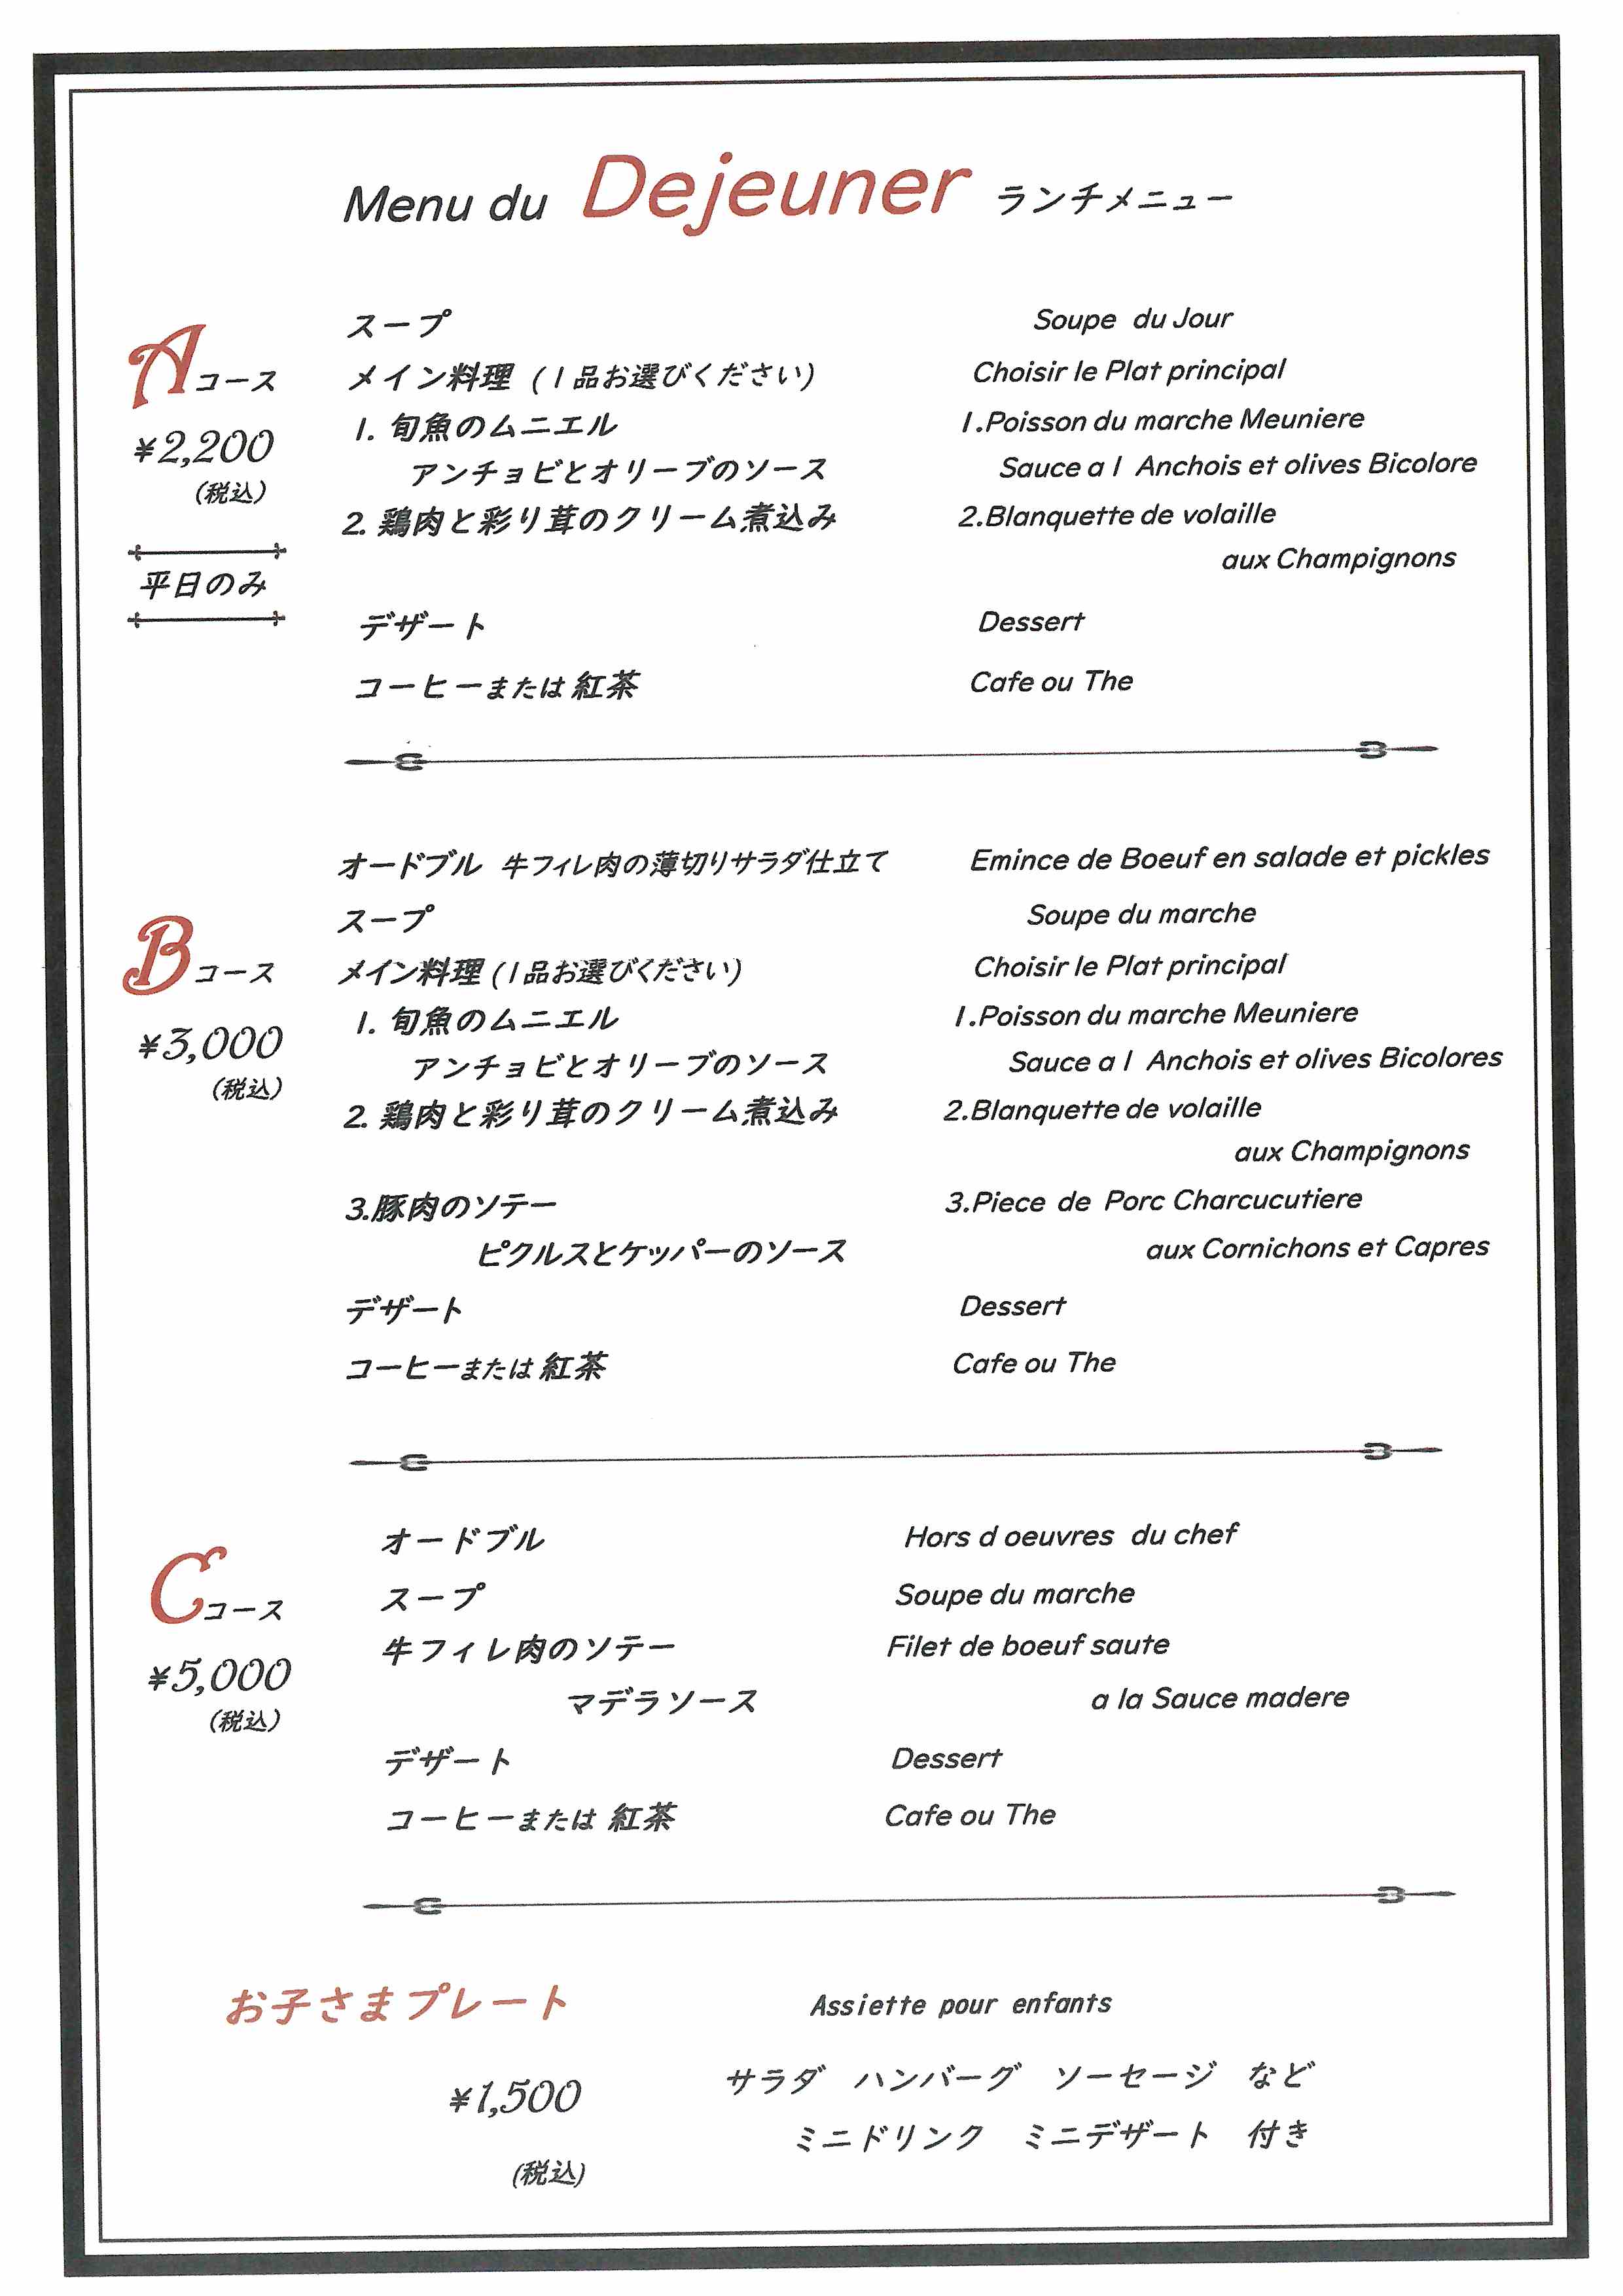 Menu du Dejeuner ランチメニュー
Aコース
¥2,200
(税込)
平日のみ
スープ Soupe du Jour
メイン料理 (1品お選びください) Choisir le Plat principal
1. 旬魚のムニエル 1.Poisson du marche Meuniere
アンチョビとオリーブのソース Sauce a l Anchois et olives Bicolore
2. 鶏肉と彩り茸のクリーム煮込み 2.Blanquette de volaille
aux Champignons
デザート Dessert
コーヒーまたは紅茶 Cafe ou The
Bコース
¥3,000
(税込)
オードブル 牛フィレ肉の薄切りサラダ仕立て Emince de Boeuf en salade et pickles
スープ Soupe du marche
メイン料理 (1品お選びください) Choisir le Plat principal
1. 旬魚のムニエル 1.Poisson du marche Meuniere
アンチョビとオリーブのソース Sauce a l Anchois et olives Bicolores
2. 鶏肉と彩り茸のクリーム煮込み 2.Blanquette de volaille
aux Champignons
3.豚肉のソテー 3.Piece de Porc Charcucutiere
ピクルスとケッパーのソース aux Cornichons et Capres
デザート Dessert
コーヒーまたは紅茶 Cafe ou The
Cコース
¥5,000
(税込)
オードブル Hors d oeuvres du chef
スープ Soupe du marche
牛フィレ肉のソテー Filet de boeuf saute
マデラソース a la Sauce madere
デザート Dessert
コーヒーまたは 紅茶 Cafe ou The
お子さまプレート Assiette pour enfants
¥1,500
(税込)
サラダ ハンバーグ ソーセージ など
ミニドリンク ミニデザート 付き